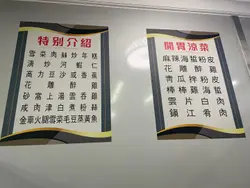 特别介紹
雪菜肉絲炒年糕
清炒河蝦仁
高力豆沙或香蕉
花雕醉雞
砂窩上湯雲吞雞
咸肉津白煮粉絲
金華火腿雪菜毛豆蒸黃魚
開胃涼菜
麻辣海蜇粉皮
花雕醉雞
青瓜拌雞粉皮
棒棒雞海蜇
雲片白肉
鎮江肴肉